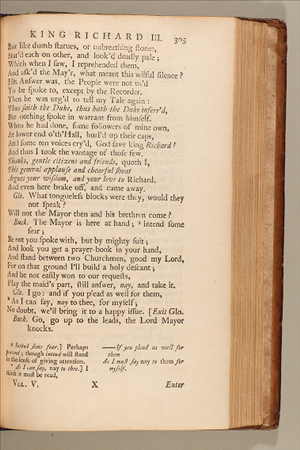 KING RICHARD III. 305
But like dumb statues, or unbreathing stones,
Star'd each on other, and look'd deadly pale;
Which when I saw, I reprehended them,
And ask'd the May'r, what meant this wilful silence?
His Answer was, the People were not us'd
To be spoke to, except by the Recorder.
Then he was urg'd to tell my Tale again:
Thus saith the Duke, thus hath the Duke inferr'd,
But nothing spoke in warrant from himself.
When he had done, some followers of mine own,
At lower end o'th'Hall, hurl'd up their caps,
And some ten voices cry'd, God save king Richard!
And thus I took the vantage of those few.
Thanks, gentle citizens and friends, quoth I,
This general applause and chearful shout
Argues your wisdom, and your love to Richard.
And even here brake off, and came away.
Glo. What tongueless blocks were they, would they
not speak?
Will not the Mayor then and his brethren come?
Buck. The Mayor is here at hand; intend some
fear;
Be not you spoke with, but by mighty suit;
And look you get a prayer-book in your hand,
And stand between two Churchmen, good my Lord,
For on that ground I'll build a holy descant;
And be not easily won to our requests,
Play the maid's part, still answer, nay, and take it.
Glo. I go: and if you plead as well for them,
As I can say, nay to thee, for myself;
No doubt, we'll bring it to a happy issue. [Exit Glo.
Buck. Go, go up to the leads, the Lord Mayor
knocks.
intend some fear.] Perhaps
pretend; though intend will stand
in the sense of giving attention.
As I can say, nay to thee.] I
think it must be read,
——If you plead as well for
them
As I must say nay to them for
myself.
VOL. V. X Enter